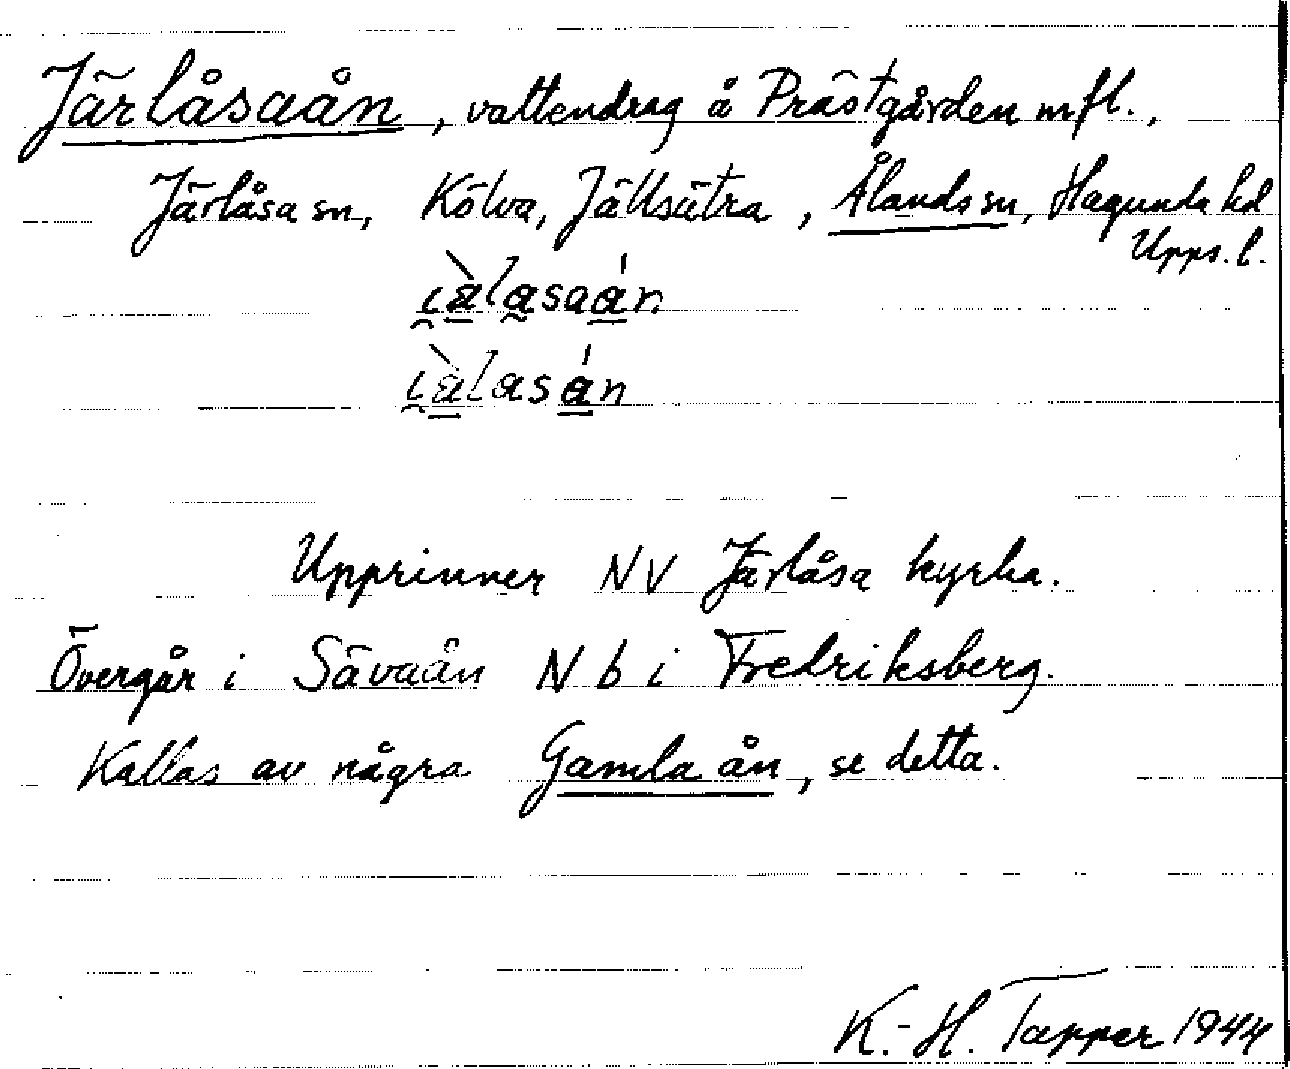 Järlåsaån, vattendrag å Prästgården mfl.,
Järlåsa sn, Kölva, Jällsätra, Ålands sn, Hagunda hd
Upps. l.
Upprinner NV Järlåsa kyrka.
Övergår i Sävaån N b i Fredriksberg.
Kallas av några Gamla ån, se detta.
K.-H. Tapper 1944